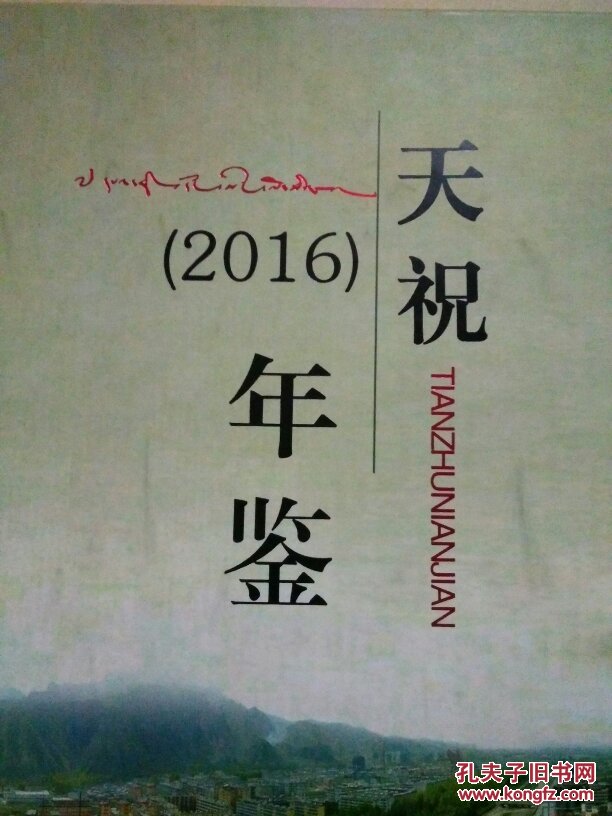 天祝
TIANZHUNIANJIAN
(2016)
年鉴
孔夫子旧书网
www.kongfz.com